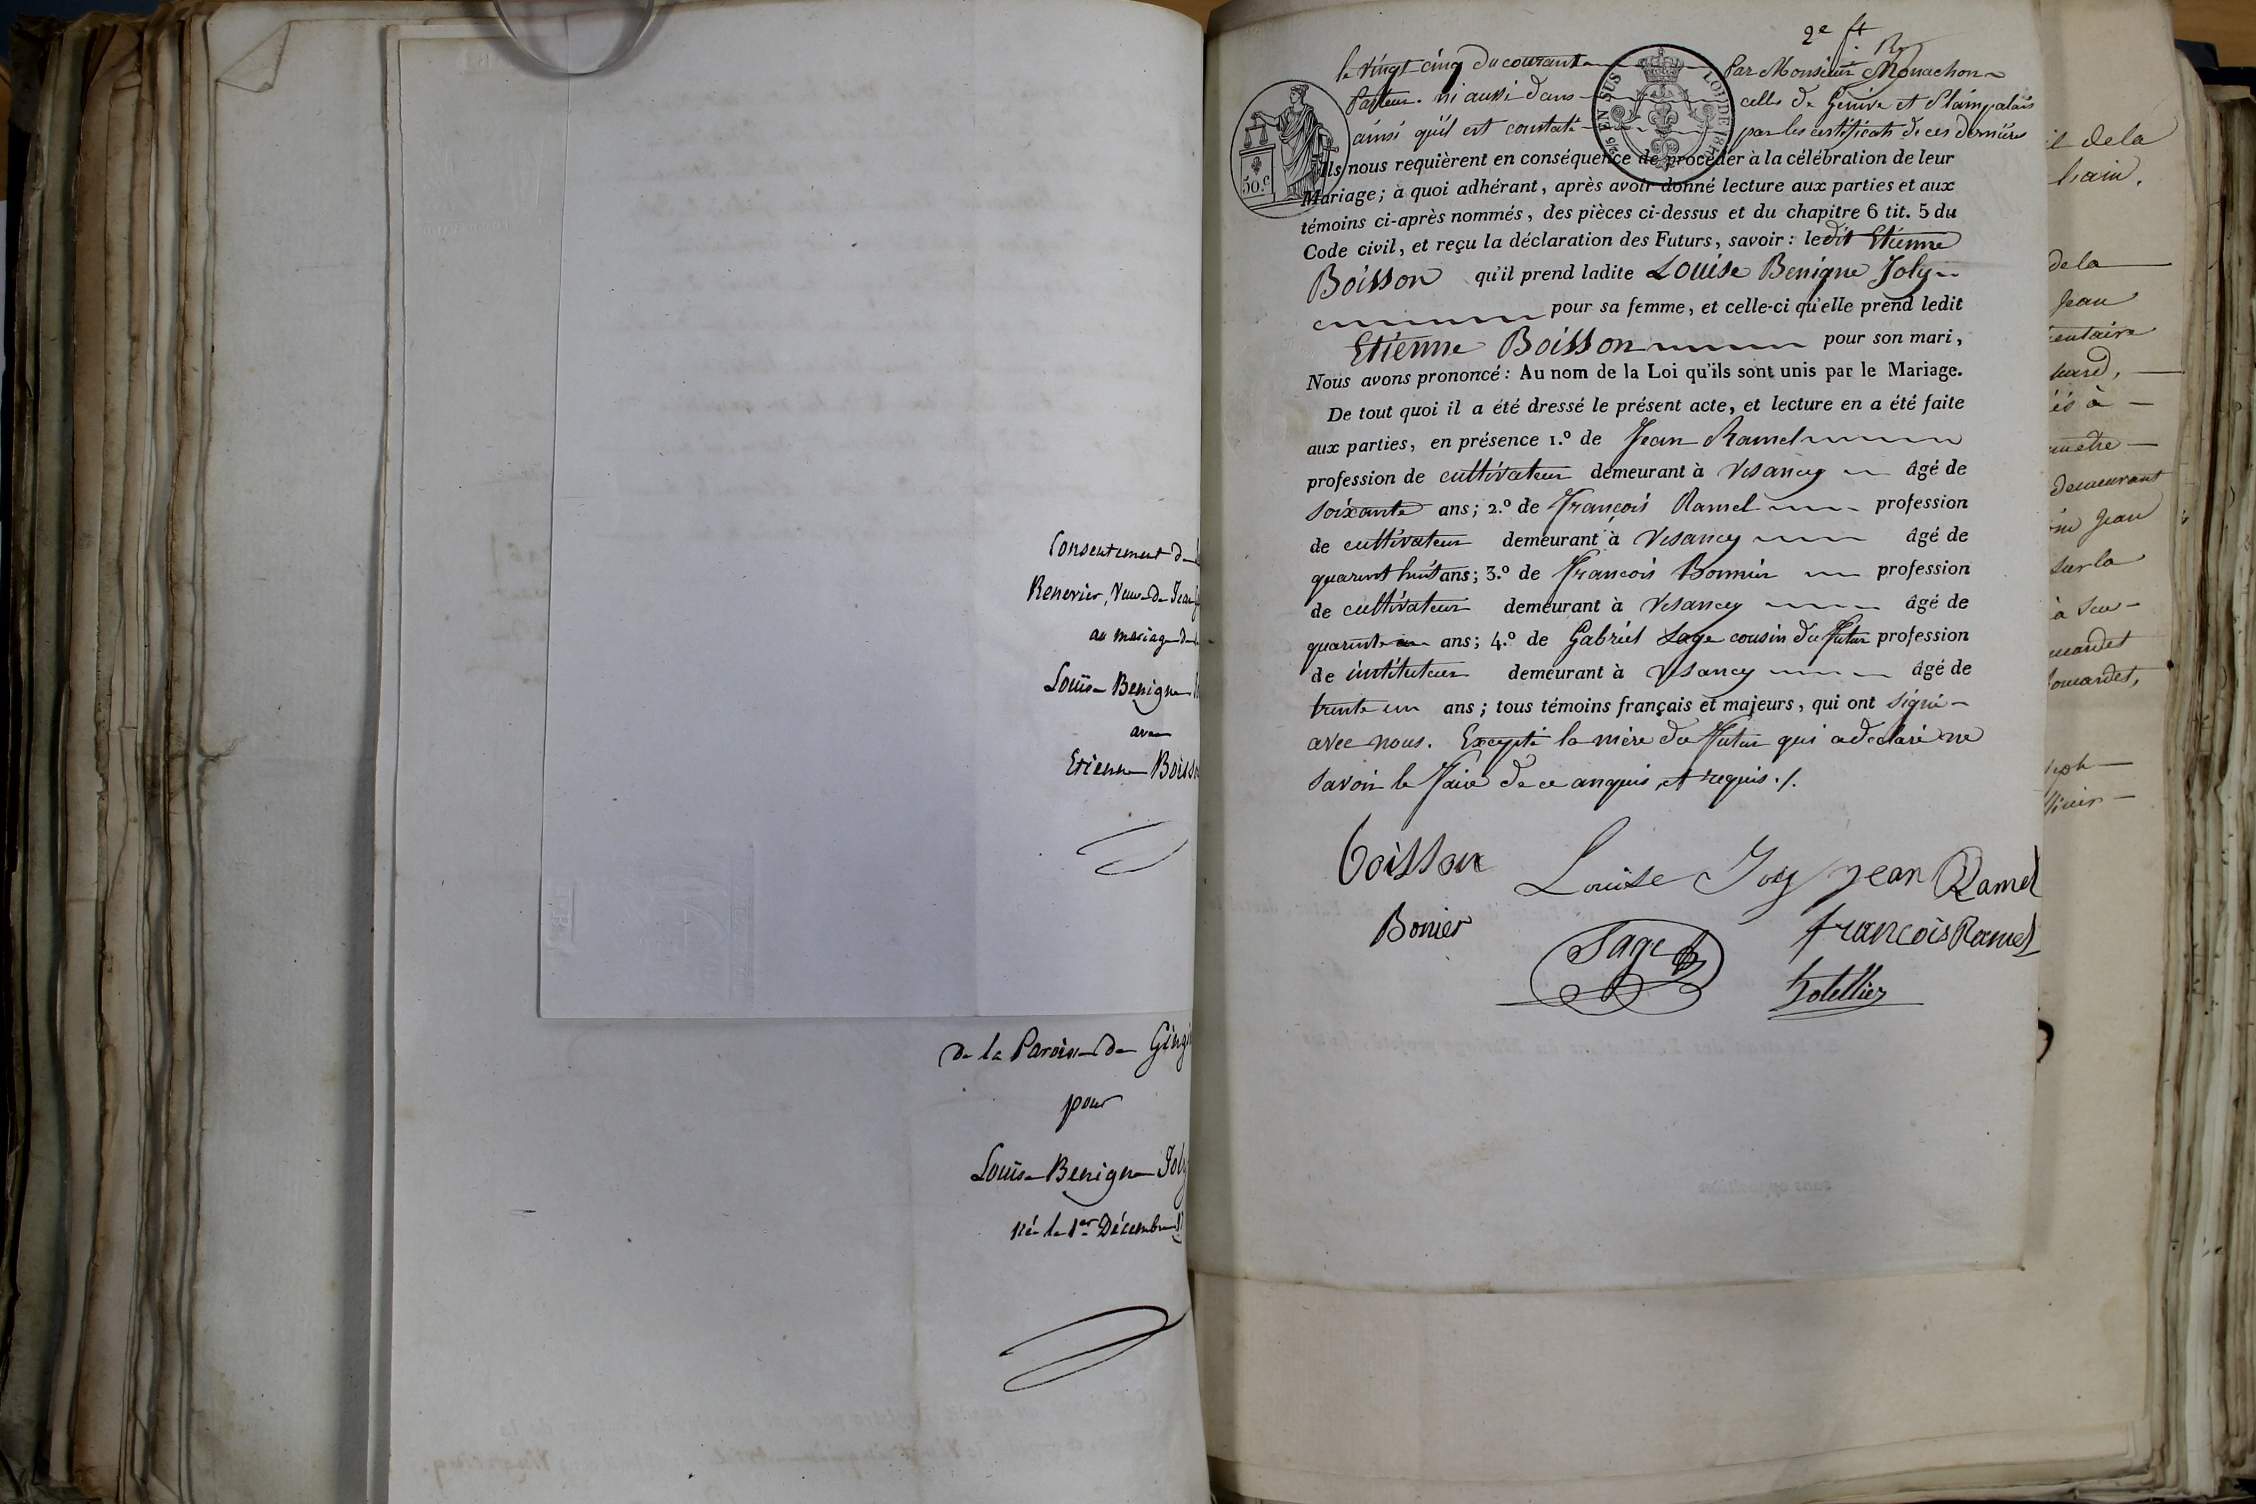 Consentement de
Renevier, Veuve de Jean
au mariage de
Louise Benigne
avec
Etienne Boisso
de la Paroisse de Gingi
pour
Louise Benigne Joly
née le 1er Décembre
2e ft
le vingt cinq du courant par Monsieur Monachon
Pasteur. ni aussi dans celles de Genève et
ainsi qu'il est constaté par les certificats de ces dernières
50.c
2/5 EN SUS LOI DE 18
Ils nous requièrent en conséquence de procéder à la célébration de leur
Mariage; à quoi adhérant, après avoir donné lecture aux parties et aux
témoins ci-après nommés, des pièces ci-dessus et du chapitre 6 tit. 5 du
Code civil, et reçu la déclaration des Futurs, savoir: ledit Etienne
Boisson qu'il prend ladite Louise Benigne Joly
pour sa femme, et celle-ci qu'elle prend ledit
Etienne Boisson pour son mari,
Nous avons prononcé: Au nom de la Loi qu'ils sont unis par le Mariage.
De tout quoi il a été dressé le présent acte, et lecture en a été faite
aux parties, en présence 1.º de Jean Ramel
profession de cultivateur demeurant à Vesancy âgé de
soixante ans; 2.º de François Ramel profession
de cultivateur demeurant à Vesancy âgé de
quarent huit ans; 3.º de François Bonnier profession
de cultivateur demeurant à Vesancy âgé de
quarente ans; 4.º de Gabriel Sage cousin du futur profession
de instituteur demeurant à Vesancy âgé de
trente un ans; tous témoins français et majeurs, qui ont signé
avec nous. Excepté la mère du futur qui a déclaré ne
savoir le faire de ce anquis et requis ./.
boisson Louise Joly jean Ramel
Bonier Sage francois Ramel
hotellier
it de la
de la
Jean
entaire
demeurant
Jean
sur la